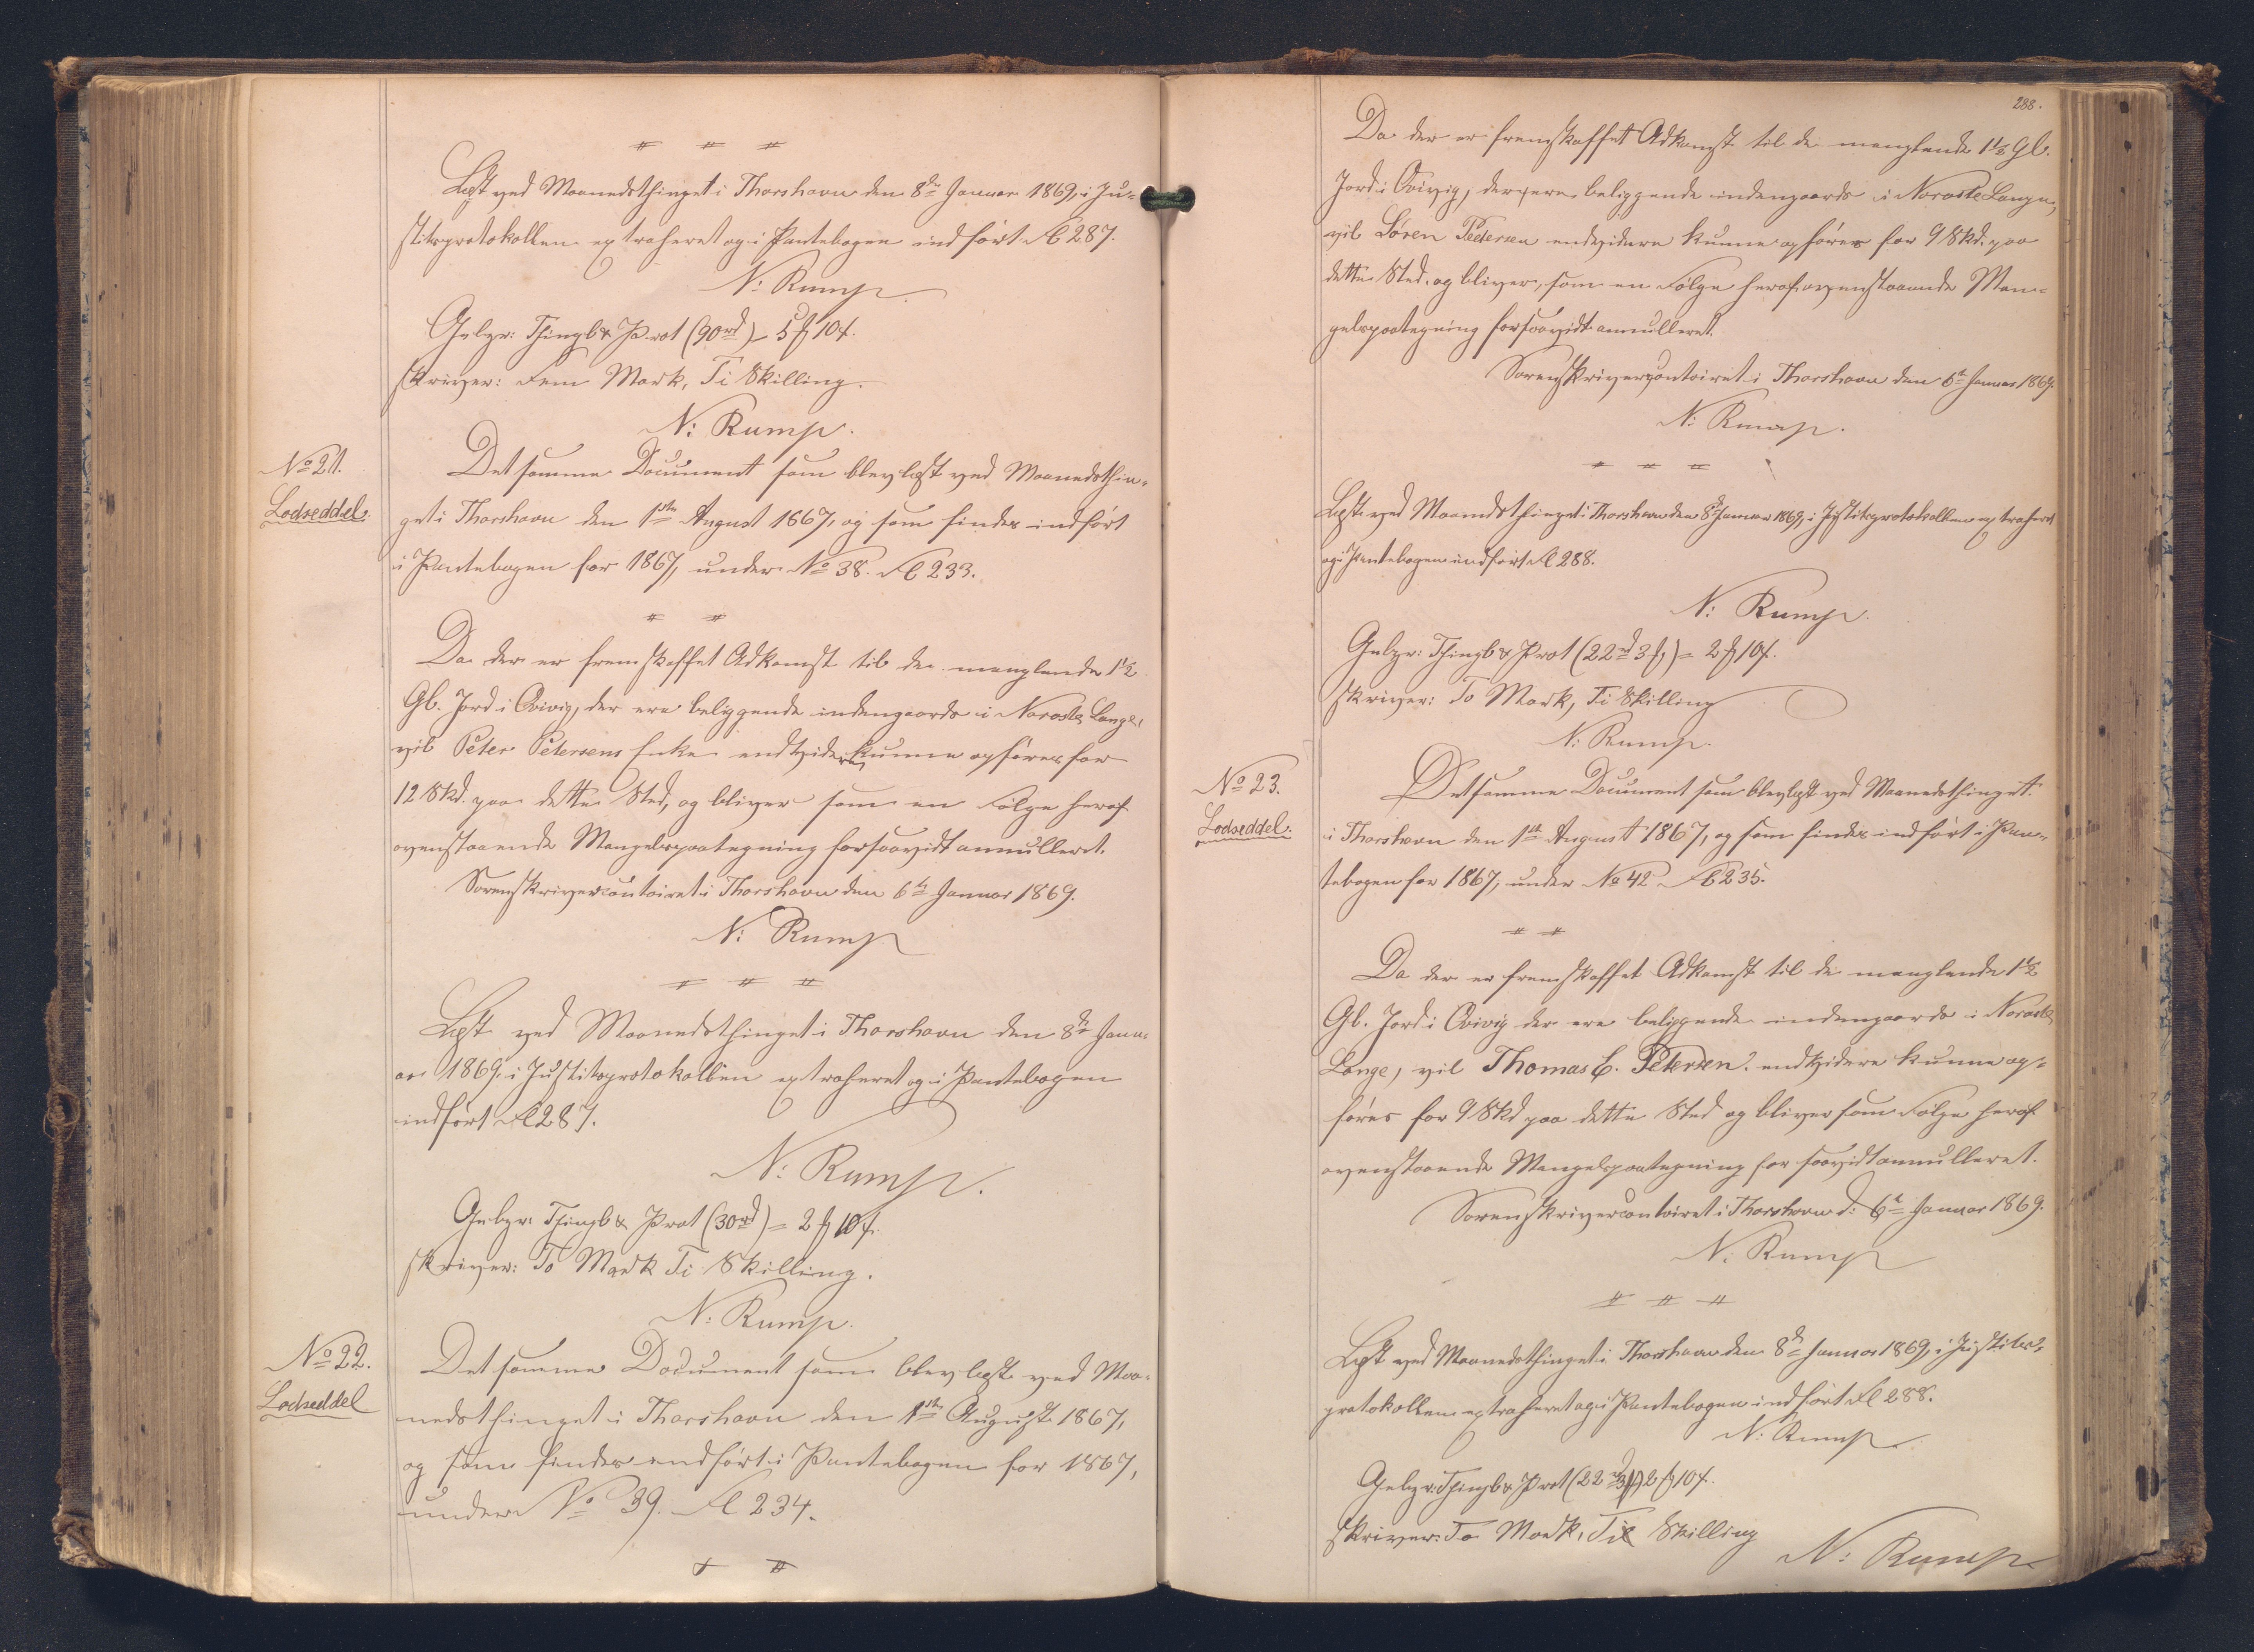 # # #
Læst ved Maanedsthinget i Thorshavn den 8de Januar 1869, i Ju-
stitsprotokollen extraheret og i Pantebogen indført Fol 287.
N: Rump.
Gebyr: Thingb & Prot (90rd) - 5 ƒ 10 ß.
skriver: Fem Mark, Ti Skilling.
N: Rump.
No 21.
Lodseddel.
Det samme Document som blev læst ved Maanedsthin-
get i Thorshavn den 1ste August 1867, og som findes indført
i Pantebogen for 1867, under No 38. Fol 233.
# #
Da der er fremskaffet Adkomst til de manglende 1 1/2
Gl. Jord i Qvivig, der ere beliggende indengaards i Noraste Lange,
vil Peter Petersens Enke endvidere kunne opføres for
12 Skd. paa dette Sted, og bliver som en Følge heraf
ovenstaaende Mangelspaategning forsaavidt annulleret.
Sorenskrivercontoiret i Thorshavn den 6te Januar 1869.
N: Rump
# # #
Læst ved Maanedsthinget i Thorshavn den 8de Janu-
ar 1869, i Justitsprotokollen extraheret og i Pantebogen
indført Fol 287.
N: Rump.
Gebyr: Thingb & Prot (30rd) = 2 ƒ 10 ß.
skriver: To Mark Ti Skilling.
N: Rump.
No 22.
Lodseddel
Det samme Document som blev læst ved Maa-
nedsthinget i Thorshavn den 1ste August 1867,
og som findes indført i Pantebogen for 1867,
under No 39. Fol 234.
# #
288.
Da der er fremskaffet Adkomst til de manglende 1 1/2 Gl.
Jord i Qvivig, der ere beliggende indengaards i Noraste Lange,
vil Søren Pedersen endvidere kunne opføres for 9 Skd. paa
dette Sted, og bliver, som en Følge heraf ovenstaaende Man-
gelspaategning forsaavidt annulleret.
Sorenskrivercontoiret i Thorshavn den 6te Januar 1869.
N: Rump.
# # #
Læst ved Maanedsthinget i Thorshavn den 8de Januar 1869, i Justitsprotokollen extraheret
og i Pantebogen indført Fol 288.
N: Rump.
Gebyr: Thingb & Prot (22rd 3ƒ) = 2 ƒ 10 ß.
skriver: To Mark, Ti Skilling
N: Rump.
No 23.
Lodseddel.
Det samme Document som blev læst ved Maanedsthinget
i Thorshavn den 1ste August 1867, og som findes indført i Pan-
tebogen for 1867, under No 42 Fol 235.
# #
Da der er fremskaffet Adkomst til de manglende 1 1/2
Gl. Jord i Qvivig der ere beliggende indengaards i Noraste
Lange, vil Thomas C. Petersen endvidere kunne op-
føres for 9 Skd paa dette Sted og bliver som Følge heraf
ovenstaaende Mangelspaategning for saavidt annulleret.
Sorenskrivercontoiret i Thorshavn d: 6te Januar 1869.
N: Rump
# # #
Læst ved Maanedsthinget i Thorshavn den 8de Januar 1869, i Justits-
protokollen extraheret og i Pantebogen indført Fol 288.
N: Rump
Gebyr: Thingb & Prot (22rd 3ƒ) 2 ƒ 10 ß.
skriver: To Mark, Ti Skilling
N: Rump